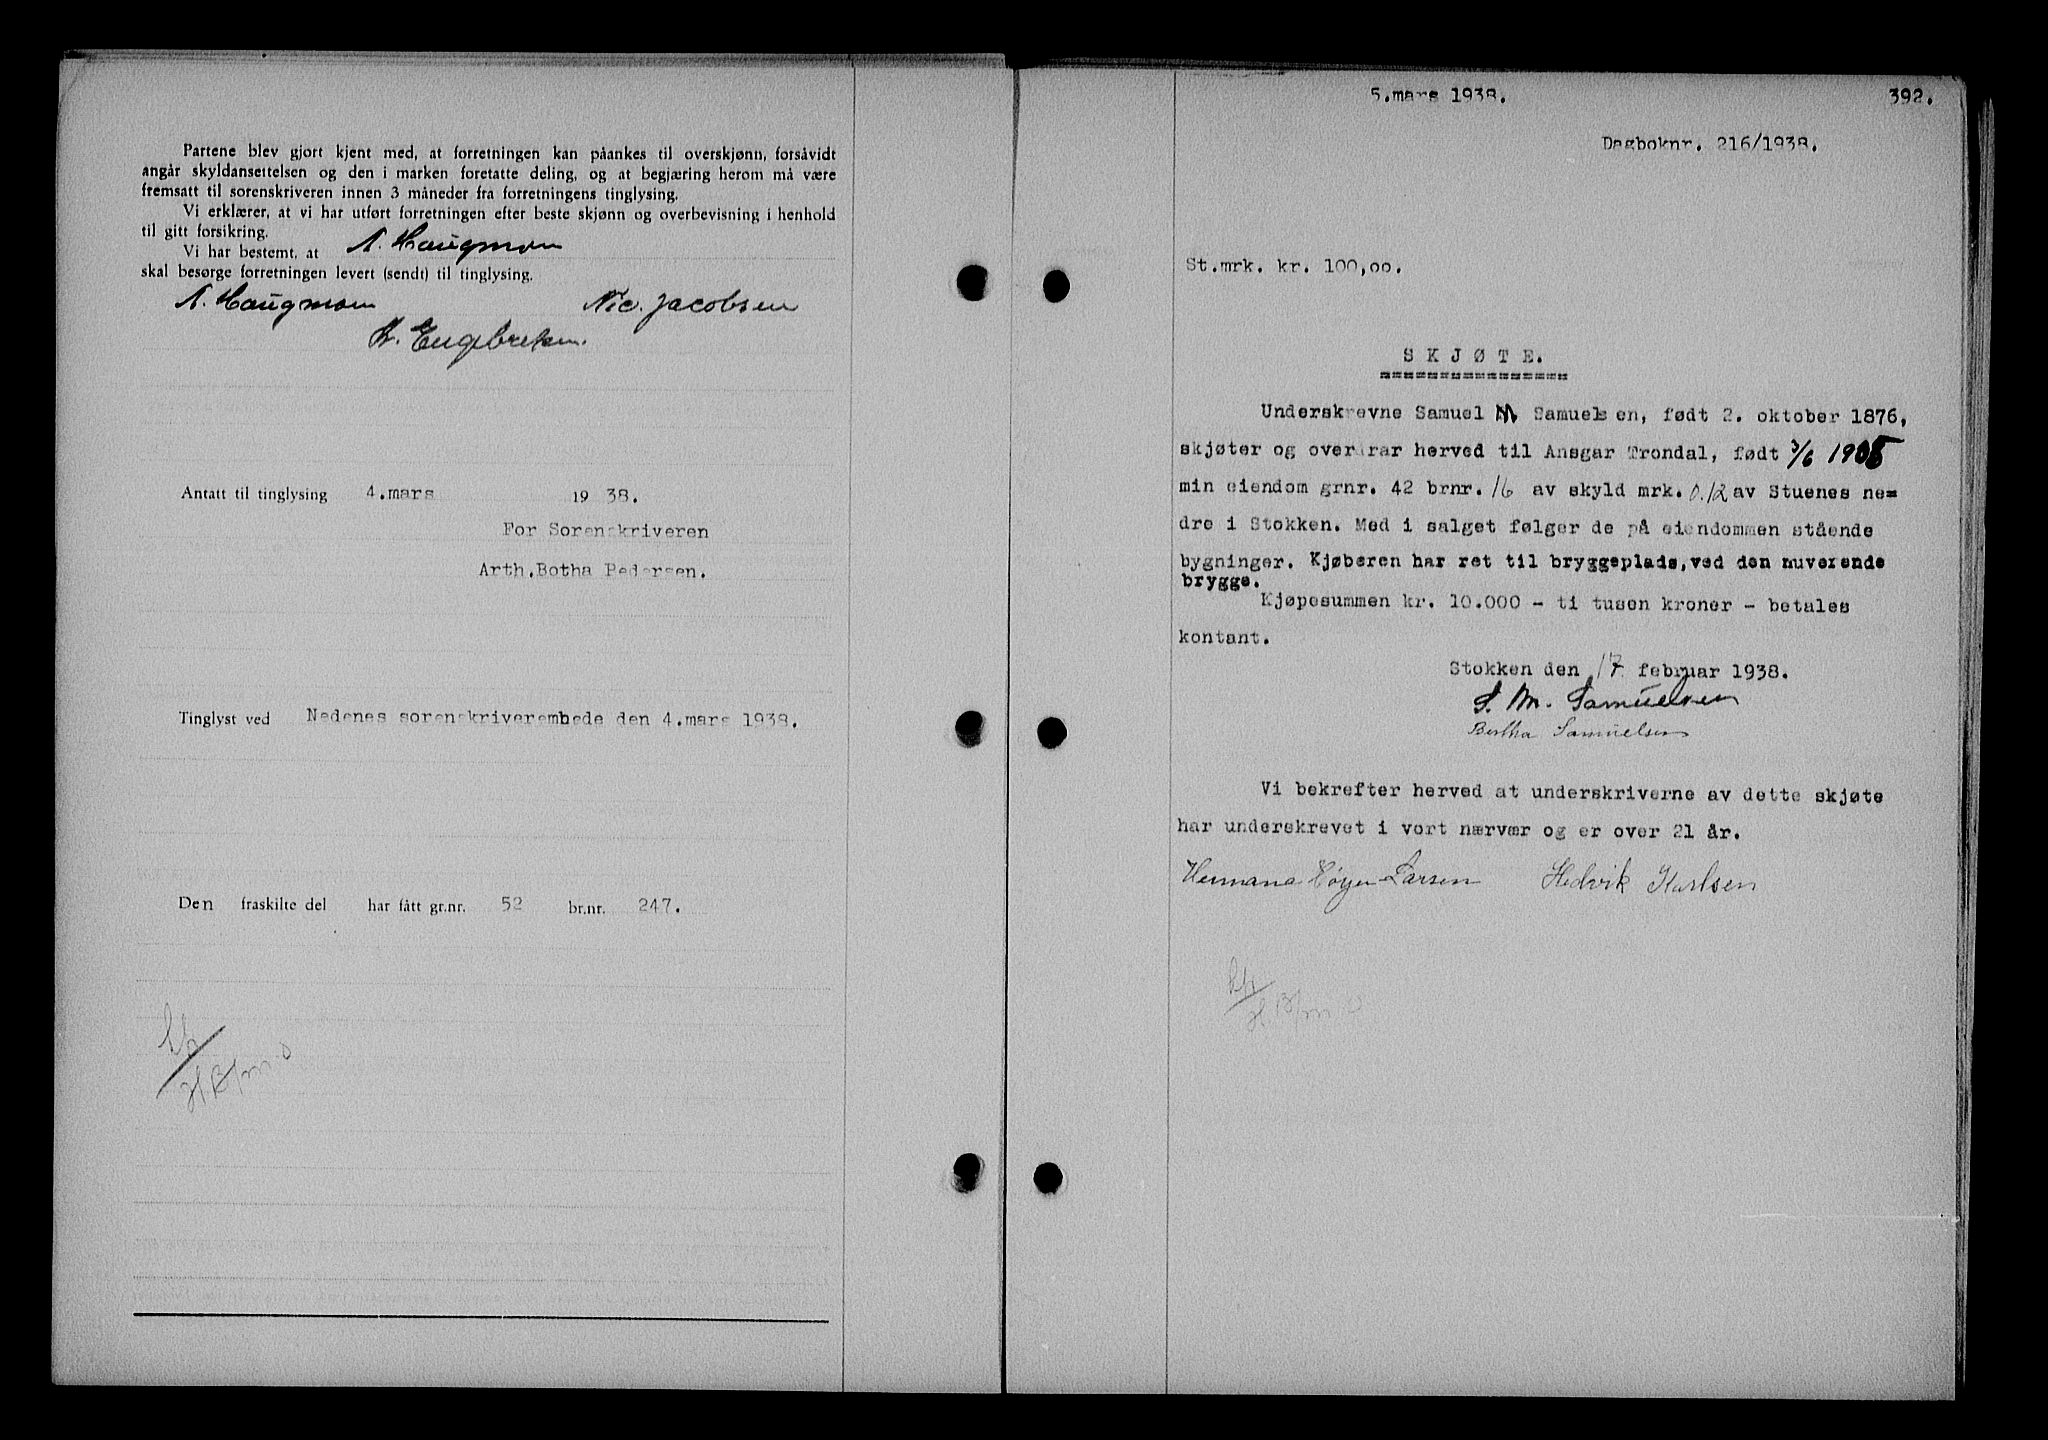 Partene blev gjort kjent med, at forretningen kan påankes til overskjønn, forsåvidt
angår skyldansettelsen og den i marken foretatte deling, og at begjæring herom må være
fremsatt til sorenskriveren innen 3 måneder fra forretningens tinglysing.
Vi erklærer, at vi har utført forretningen efter beste skjønn og overbevisning i henhold
til gitt forsikring.
Vi har bestemt, at A. Haugmom
skal besørge forretningen levert (sendt) til tinglysing.
A. Haugmom Nic. Jacobsen
Engebretsen.
Antatt til tinglysing 4.mars 19 38.
For Sorenskriveren
Arth.Botha Pedersen.
Tinglyst ved Nedenes sorenskriverembede den 4.mars 1938.
Den fraskilte del har fått gr.nr. 52 br.nr. 247.
5.mars 1938. 392.
Dagboknr. 216/1938.
St.mrk. kr. 100,oo.
S K J Ø T E.
================
Underskrevne Samuel M Samuelsen, født 2. oktober 1876,
skjøter og overdrar herved til Ansgar Trondal, født 3/6 1905
min eiendom grnr. 42 brnr. 16 av skyld mrk. 0.12 av Stuenes ne=
dre i Stokken. Med i salget følger de på eiendommen stående
bygninger. Kjøberen har ret til bryggeplads,ved den nuverende
brygge.
Kjøpesummen kr. 10.000 - ti tusen kroner - betales
kontant.
Stokken den 17 februar 1938.
S. M. Samuelsen
Bertha Samuelsen
Vi bekrefter herved at underskriverne av dette skjøte
har underskrevet i vort nærvær og er over 21 år.
Hermana Larsen Hedvik Karlsen